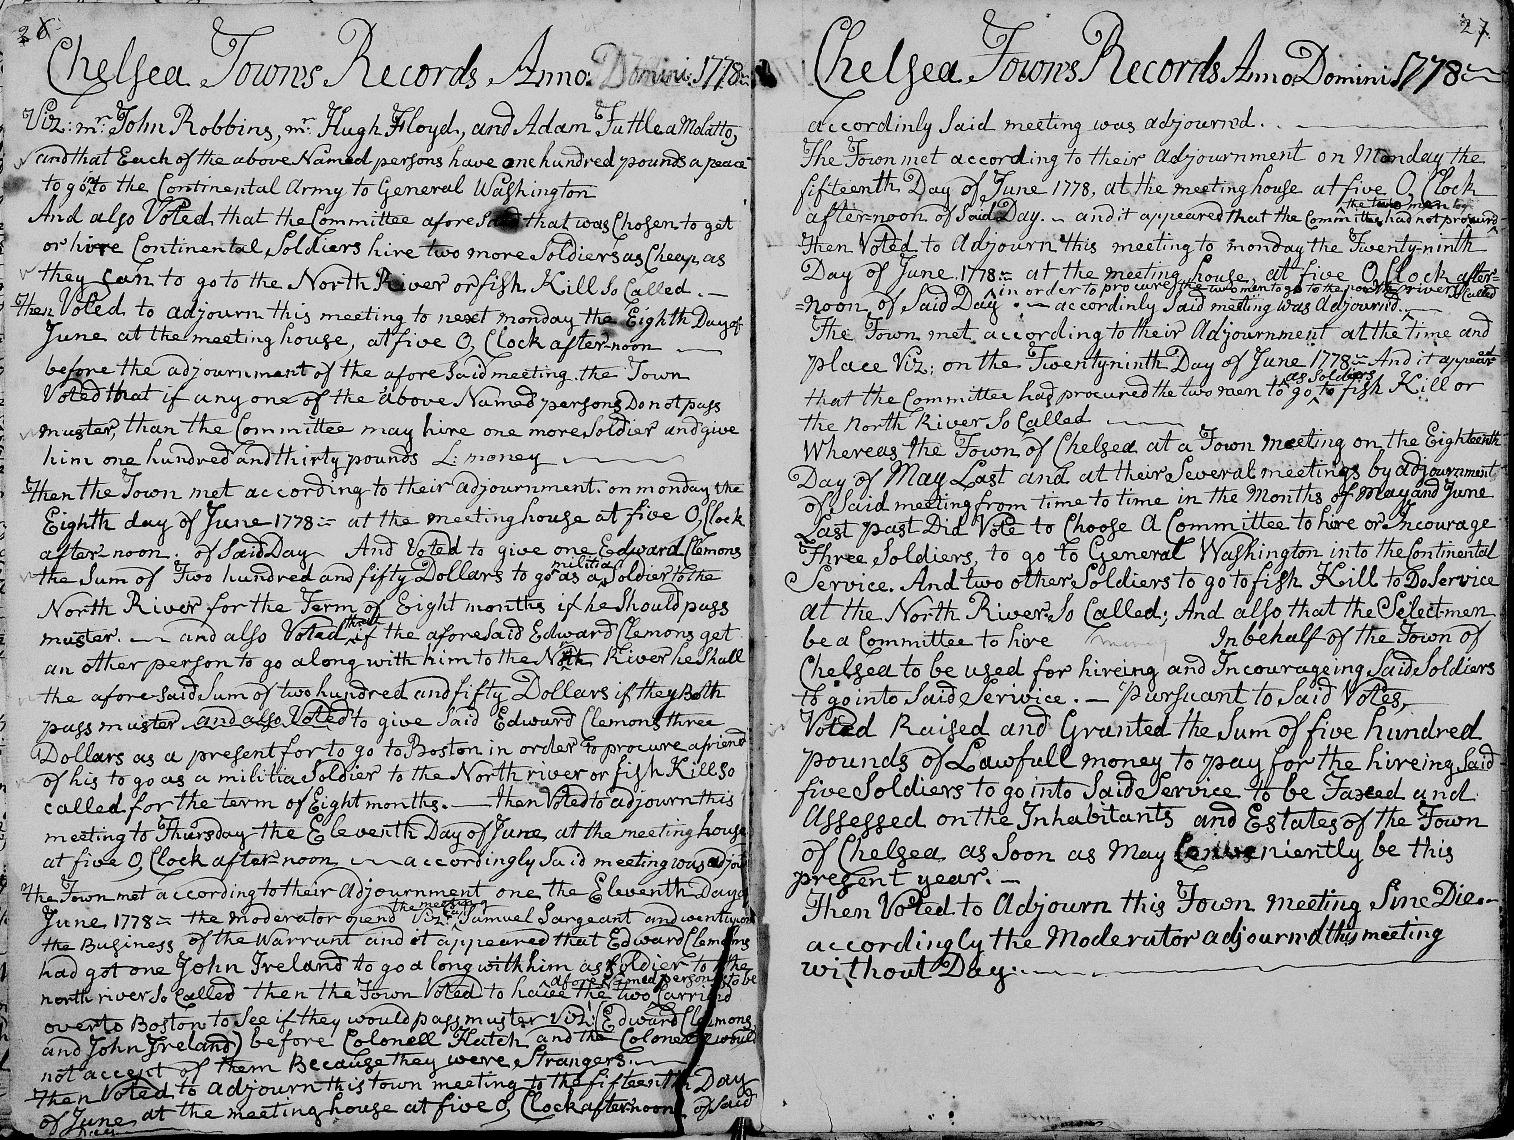 26
Chelsea Towns Records Anno: Domini 1778
Viz: mr. John Robbins, mr. Hugh Floyd, and Adam Tuttle a Molatto,
and that Each of the above Named persons have one hundred pounds a peace
to go to the Continental Army to General Washington
And also Voted that the Committee afore Said that was Chosen to get
or hire Continental Soldiers hire two more Soldiers as Cheap as
they can to go to the North River or fish Kill So Called. —
Then Voted to adjourn this meeting to next monday the Eighth Day of
June at the meeting house, at five O, Clock after-noon —
before the adjournment of the afore Said meeting. the Town
Voted that if any one of the above Named persons Do not pass
muster, than the Committee may hire one more Soldier and give
him one hundred and thirty pounds L: money —
Then the Town met according to their adjournment. on monday the
Eighth day of June 1778 = at the meeting house at five O, Clock
after-noon. of Said Day And Voted to give one Edward Clemons
the Sum of Two hundred and fifty Dollars to go as a militia Soldier to the
North River for the Term of Eight months if he Should pass
muster. — and also Voted that if the afore Said Edward Clemons get
an other person to go along with him to the North River he Shall
the afore-Said Sum of two hundred and fifty Dollars if they Both
pass muster and also Voted to give Said Edward Clemons three
Dollars as a present for to go to Boston in order to procure a friend
of his to go as a militia Soldier to the North river or fish Kill So
called. for the term of Eight months. — then Voted to adjourn this
meeting to Thursday the Eleventh Day of June at the meeting house
at five O, Clock after-noon — accordingly Said meeting was
the Town met according to their Adjournment one the Eleventh Day of
June 1778 = the moderator opend the meeting Viz: Samuel Sargeant and went upon
the Business of the Warrant and it appeared that Edward Clemons
had got one John Ireland to go along with him as Soldier to the
north river So Called then the Town Voted to have the two afore Named persons to be Carried
over to Boston to See if they would pass muster Viz: (Edward Clemons
and John Ireland) before Colonell Hatch and the Colonel would
not accept of them Because they were Strangers. —
Then Voted to adjourn this town meeting to the fifteenth Day
of June at the meeting house at five O, Clock after-noon of Said
Day
27
Chelsea Towns Records Anno Domini 1778
accordinly Said meeting was adjournd. —
The Town met according to their Adjournment on Monday the
fifteenth Day of June 1778, at the meeting house at five O, Clock
after-noon of Said Day. — and it appeared that the Committee had not procurd the two men
Then Voted to Adjourn this meeting to monday the Twenty-ninth
Day of June 1778 = at the meeting house, at five O, Clock after=
=noon of Said Day in order to procure the two men to go to the north river So Called — accordinly Said meeting was Adjournd.
The Town met according to their Adjournment at the time and
place Viz; on the Twenty ninth Day of June 1778 = And it appeard
that the Committee had procured the two men to go as Soldiers to fish Kill or
the North River So Called —
Whereas the Town of Chelsea at a Town meeting on the Eighteenth
Day of May Last and at their Several meetings by adjournment
of Said meeting from time to time in the Months of May and June
Last past Did Vote to Choose A Committee to hire or Incourage
Three Soldiers, to go to General Washington into the Continental
Service. And two other Soldiers to go to fish Kill to Do Service
at the North River So Called; And also that the Selectmen
be a Committee to hire money In behalf of the Town of
Chelsea to be used for hireing and Incourageing Said Soldiers
to go into Said Serivice. — pursuant to Said Votes,
Voted Raised and Granted the Sum of five hundred
pounds of Lawfull money to pay for the hireing Said
five Soldiers to go into Said Service to be Taxed and
Assessed on the Inhabitants and Estates of the Town
of Chelsea as Soon as May Conveniently be this
present year. —
Then Voted to Adjourn this Town meeting Sine Die. —
accordingly the Moderator adjournd this meeting
without Day. —